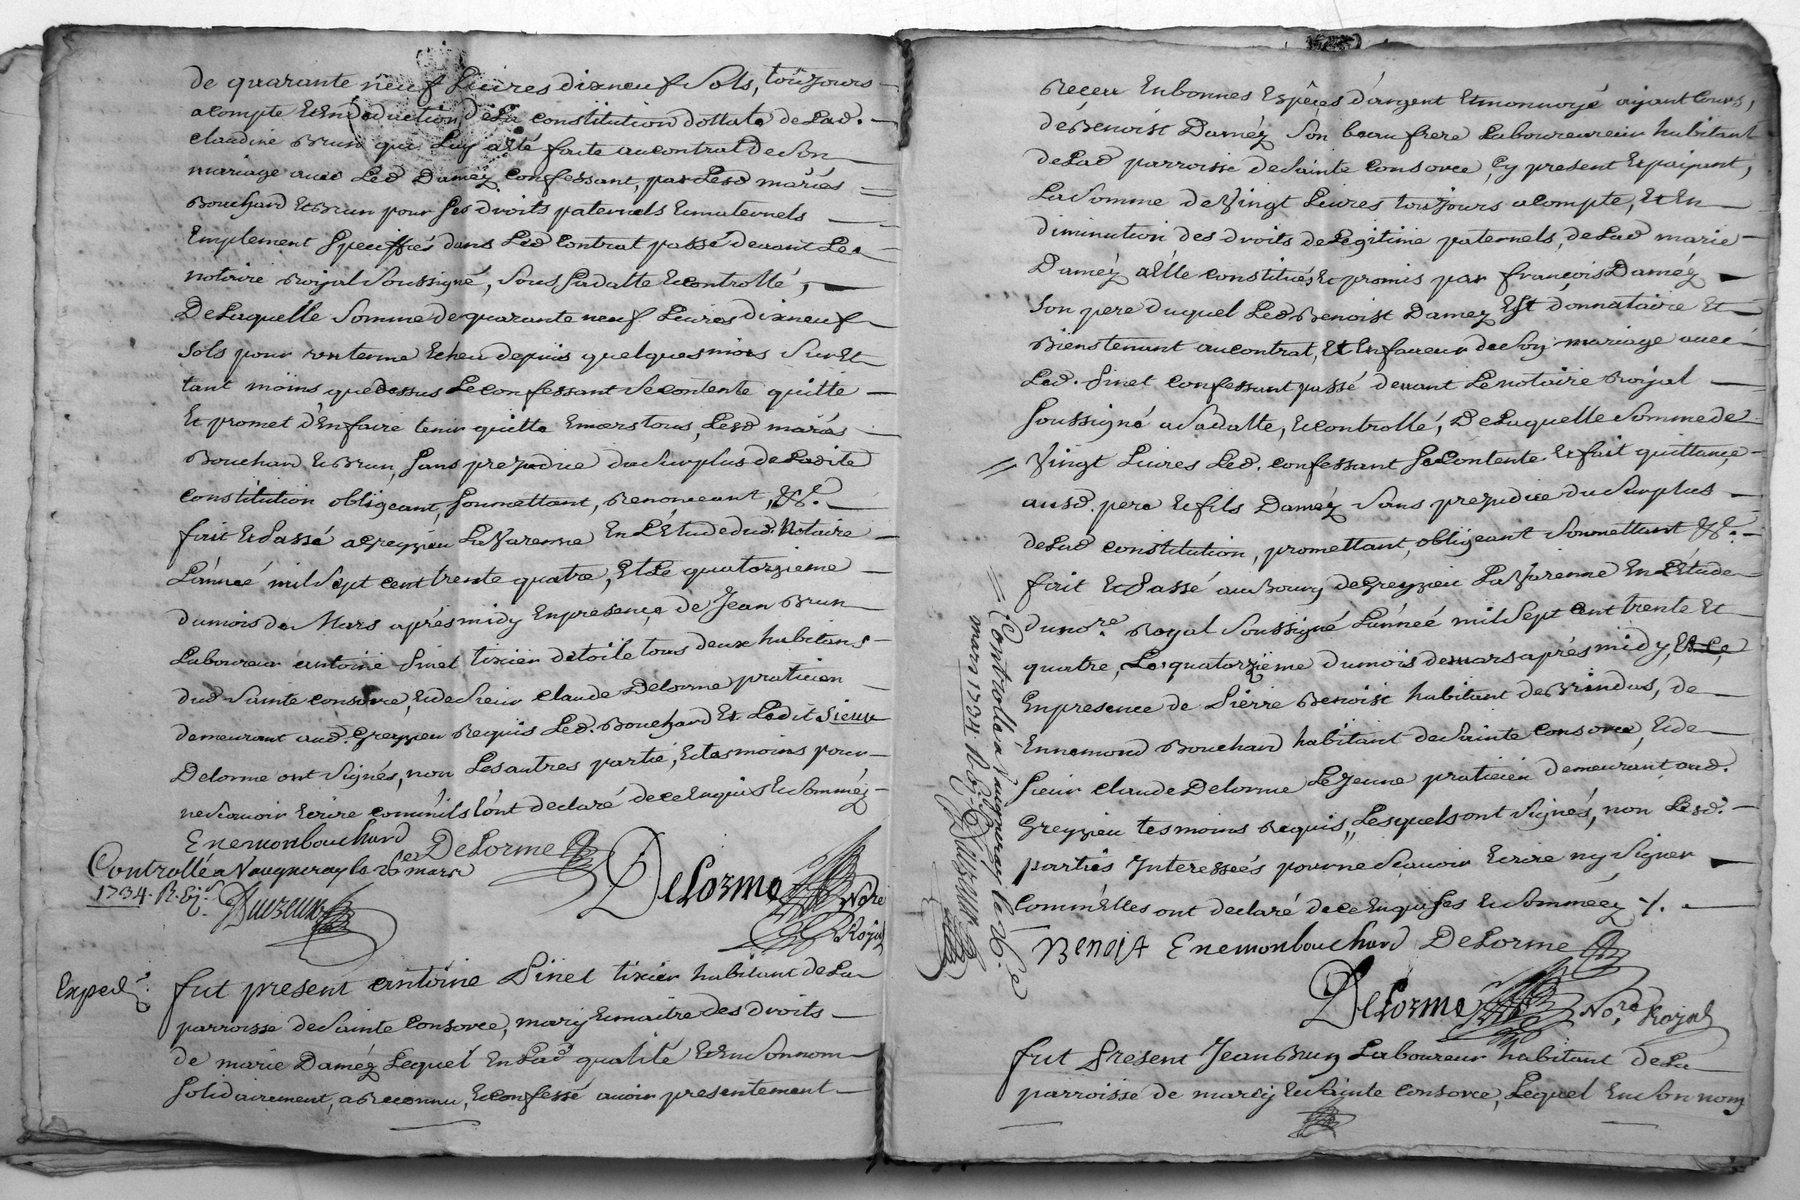 de quarante neuf Livres dixneuf Sols, toujours
acompte Et En deduction de La constitution dottale de Lad.
claudine Brun qui Luy a été faite au contrat de Son
mariage avec Led Daméz confessant, par Lesd mariés
Bouchard Et Brun pour Ses droits paternels Et maternels
Emplement Specifiés dans Led Contrat passé devant Le
notaire Royal Soussigné, Sous Sa datte Et controllé,
De Laquelle Somme de quarante neuf Livres dixneuf
Sols pour un terme Echeu depuis quelques mois Sur Et
tant moins que dessus Le confessant Se contente quitte
Et promet d'En faire tenir quitte Envers tous, Lesd mariés
Bouchard Et Brun, Sans prejudice du Surplus de Ladite
constitution obligeant, Soumettant, Renonceant, &c.
fait Et Passé a Greyzieu La Varenne En L'Etude dud. Notaire
L'année mil Sept cent trente quatre, Et Le quatorzieme
du mois de Mars aprés midy En presence de Jean Brun
Laboureur antoine Pinet tixier de toile tous deux habitans
dud. Sainte consorce, Et de Sieur claude Delorme praticien
demeurant aud. Greyzieu Requis Led. Bouchard Et Ledit Sieur
Delorme ont Signés, non Les autres partie, Et tesmoins pour
ne Scavoir Ecrire comm'ils l'ont declaré de ce Enquis Et Somméz
Enemonbouchard
DeLorme
Controllé a Vaugneray le 26e mars
1734. R. 6 s.
DeLorme Nore
Royal
Exped.
fut present antoine Pinet tixier habitant de La
parroisse de Sainte Consorce, mary Et maitre des droits
de marie Daméz Lequel En Lad qualité Et En Son nom
Solidairement, a Reconnu, Et confessé avoir presentement
Receu En bonnes Espêces d'argent Et monnoyé ayant Cours,
de Benoist Daméz Son beau frere Laboureur habitant
de Lad parroisse de Sainte Consorce, Cy present Et payant,
La Somme de Vingt Livres toujours acompte, Et En
diminution des droits de Legitime paternels, de Lad marie
Daméz a Elle constitués Et promis par françois Daméz
Son pere duquel Led Benoist Daméz Est donnataire Et
Bienstenant au contrat, Et En faveur de Son mariage avec
Led. Pinet confessant passé devant Le notaire Royal
Soussigné a Sa datte, Et controllé, De Laquelle Somme de
Vingt Livres Led. confessant Se Contente Et fait quittance
ausd. pere Et fils Daméz Sans prejudice du Surplus
de Lad constitution, promettant, obligeant Soumettant &c.
fait Et Passé au Bourg de Greyzieu La Varenne En L'Etude
du nore. Royal Soussigné L'année mil Sept Cent trente Et
quatre, Le quatorzième du mois de mars aprés midy, Et Ce,
En presence de Pierre Benoist habitant de Brindas, de
Ennemond Bouchard habitant de Sainte Consorce, Et de
Sieur claude Delorme Le Jeune praticien demeurant aud.
Greyzieu tesmoins Requis, Lesquels ont Signés, non Lesd.
parties Interessées pour ne Scavoir Ecrire ny Signer
Comm'Elles ont declaré de ce Enquises Et Sommeéz ./.
Controllé a Vaugneray le 26.e
mars 1734 R. 6 s.
Benoist Enemonbouchard DeLorme
DeLorme Nore. Royal
fut Present Jean Brun Laboureur habitant de La
parroisse de marcy Et Sainte Consorce, Lequel En Son nom